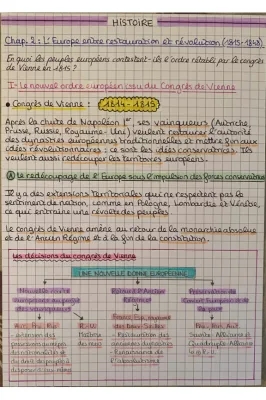 HISTOIRE
Chap. 2 : L'Europe entre restauration et révolution (1815-1848)
En quoi les peuples européens contestent-ils l'ordre rétabli par le congrès
de Vienne en 1815 ?
I- Le nouvel ordre européen issu du Congrès de Vienne
• Congrès de Vienne : 1814-1815
Après la chute de Napoléon Ier, ses vainqueurs (Autriche,
Prusse, Russie, Royaume-Uni) veulent restaurer l'autorité
des dynasties européennes traditionnelles et mettre fin aux
idées révolutionnaires : ce sont les idées conservatrices. Ils
veulent aussi redécouper les territoires européens.
A Le redécoupage de l'Europe sous l'impulsion des forces conservatrices
Il y a des extensions territoriales qui ne respectent pas le
sentiment de nation, comme en Pologne, Lombardie et Vénétie,
ce qui entraîne une révolte des peuples.
Le congrès de Vienne amène au retour de la monarchie absolue
et de l'Ancien Régime et à la fin de la constitution.
Les décisions du congrès de Vienne
UNE NOUVELLE DONNE EUROPÉENNE
Nouvelle carte
européenne au profit
des vainqueurs
Retour à l'Ancien
Régime
Préservation du
Aut, Pru, Rus
R-U
Maîtrise
des mers
- Restauration des
dynasties
- Renaissance de
Pru, Rus, Aut
Sainte Alliance et
Quadruple Alliance